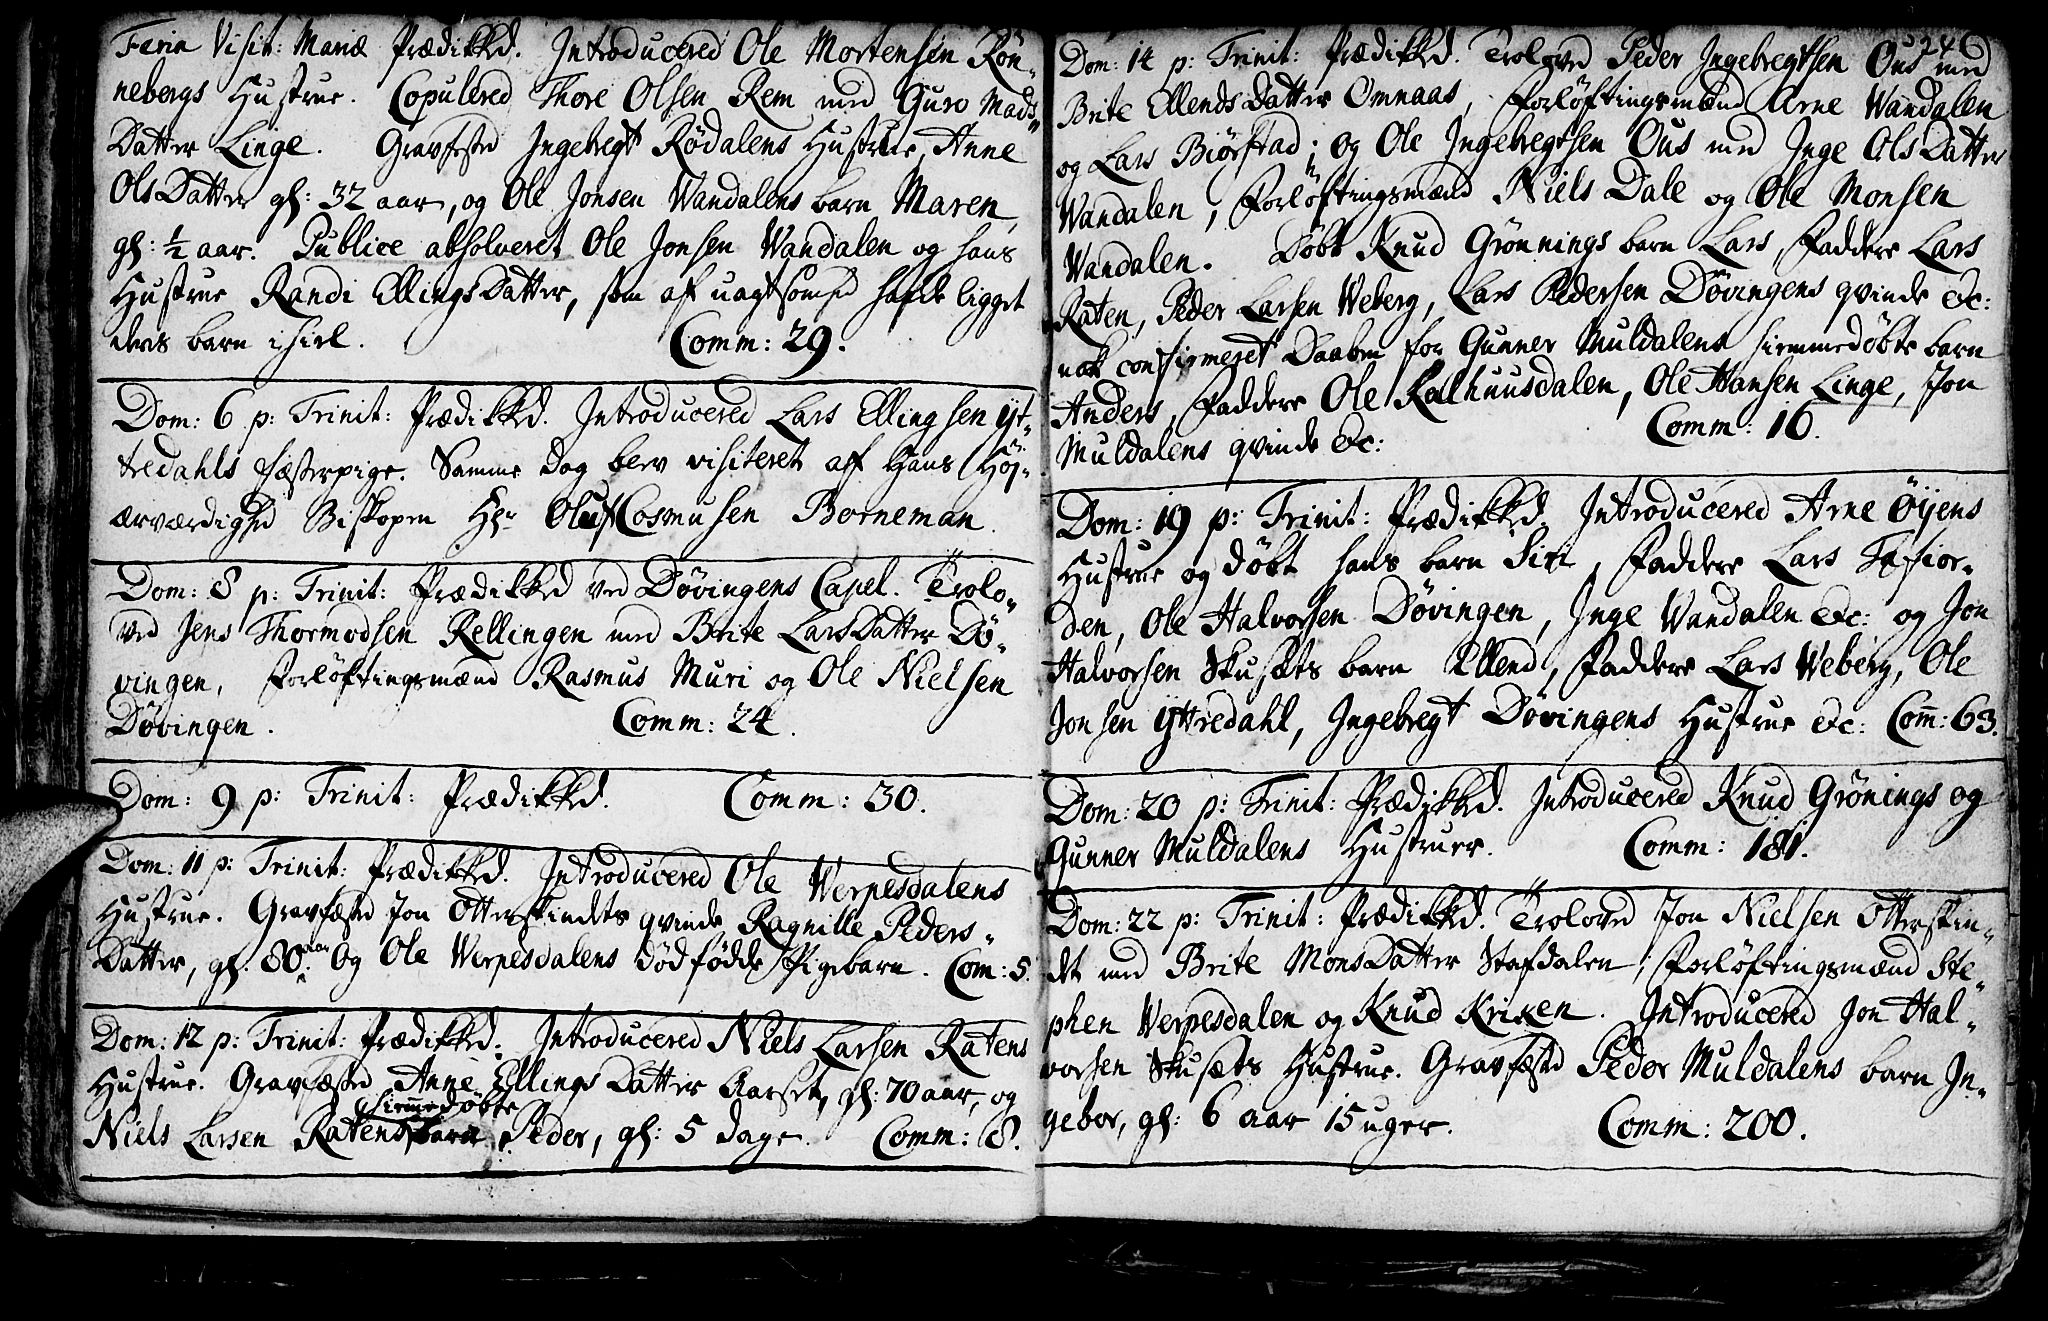 Feria Visit: Mariæ Prædikked. Introducered Ole Mortensen Rön-
nebergs Hustrue. Copulered Thore Olsen Rem med Guro Mads-
Datter Linge. Gravfested Ingebregt Rödalens Hustrue, Anne
OlsDatter gl: 32 aar, og Ole Jonsen Wandalens barn Maren,
gl: ½ aar. Publice absolveret Ole Jonsen Wandalen og hans
Hustrue Randi EllingsDatter, som af uagtsomhed hafde ligget
ders barn ihiel. Comm: 29.
Dom: 6 p: Trinit: Prædikked. Introducered Lars Ellingsen Yt-
tredahls fæsterpige. Samme dag blev visiteret aff Hans Höj-
ærværdighed Biskopen Hr Oluf Cosmusen Borneman.
Dom: 8 p: Trinit: Prædikked ved Dövingens Capel. Trolo-
ved Jens Thormodsen Rellingen med Brite LarsDatter Dö-
vingen, Forlöftingsmænd Rasmus Muri og Ole Nielsen
Dövingen. Comm: 24.
Dom: 9 p: Trinit: Prædikked. Comm: 30.
Dom: 11 p: Trinit: Prædikked. Introducered Ole Werpesdalens
Hustrue. Gravfæsted Jon Otterskindets qvinde Ragnille Peders-
Datter, gl: 80 aar. Og Ole Werpesdalens dödfödde Pigebarn. Com: 5.
Dom: 12 p: Trinit: Prædikked. Introducered Niels Larsen Ratens
Hustrue. Gravfæsted Anne EllingsDatter Aarset, gl: 70 aar, og
Niels Larsen Ratens hiemmedöbte barn Peder, gl: 5 dage. Comm: 8.
246
Dom: 14 p: Trinit: Prædikked. Troloved Peder Ingebregtsen Ous med
Brite EllendsDatter Omnaas, Forlöftingsmænd Arne Wandalen
og Lars Biörstad; og Ole Ingebregtsen Ous med Inge OlsDatter
Wandalen, Forlöftingsmænd Niels Dale og Ole Monsen
Wandalen. Döbt Knud Grönnings barn Lars, Faddere Lars
Raten, Peder Larsen Weberg, Lars Pedersen Dövingens qvinde etc:
nok confirmeret Daaben for Gunner Muldalens hiemmedöbte barn
Anders, Faddere Ole Kalhuusdalen, Ole Hansen Linge, Jon
Muldalens qvinde etc: Comm: 16.
Dom: 19 p: Trinit: Prædikked. Introducered Arne Öyens
Hustrue og döbt hans barn Siri, Faddere Lars Tafior-
den, Ole Halvorsen Dövingen, Inge Wandalen etc: og Jon
Halvorsen Skusets barn Ellend, Faddere Lars Weberg, Ole
Jonsen Yttredahl, Ingebregt Dövingens Hustrue etc: Com: 63.
Dom: 20 p: Trinit: Prædikked. Introducered Knud Grönings og
Gunner Muldalens Hustruer. Comm: 181.
Dom: 22 p: Trinit: Prædikked. Troloved Jon Nielsen Otterskin-
det med Brite MonsDatter Stafdalen; Forlöftingsmænd Ste-
phen Werpesdalen og Knud Kriken. Introducered Jon Hal-
vorsen Skusæts Hustrue. Gravfæsted Peder Muldalens barn In-
gebor, gl: 6 aar 15 uger. Comm: 200.